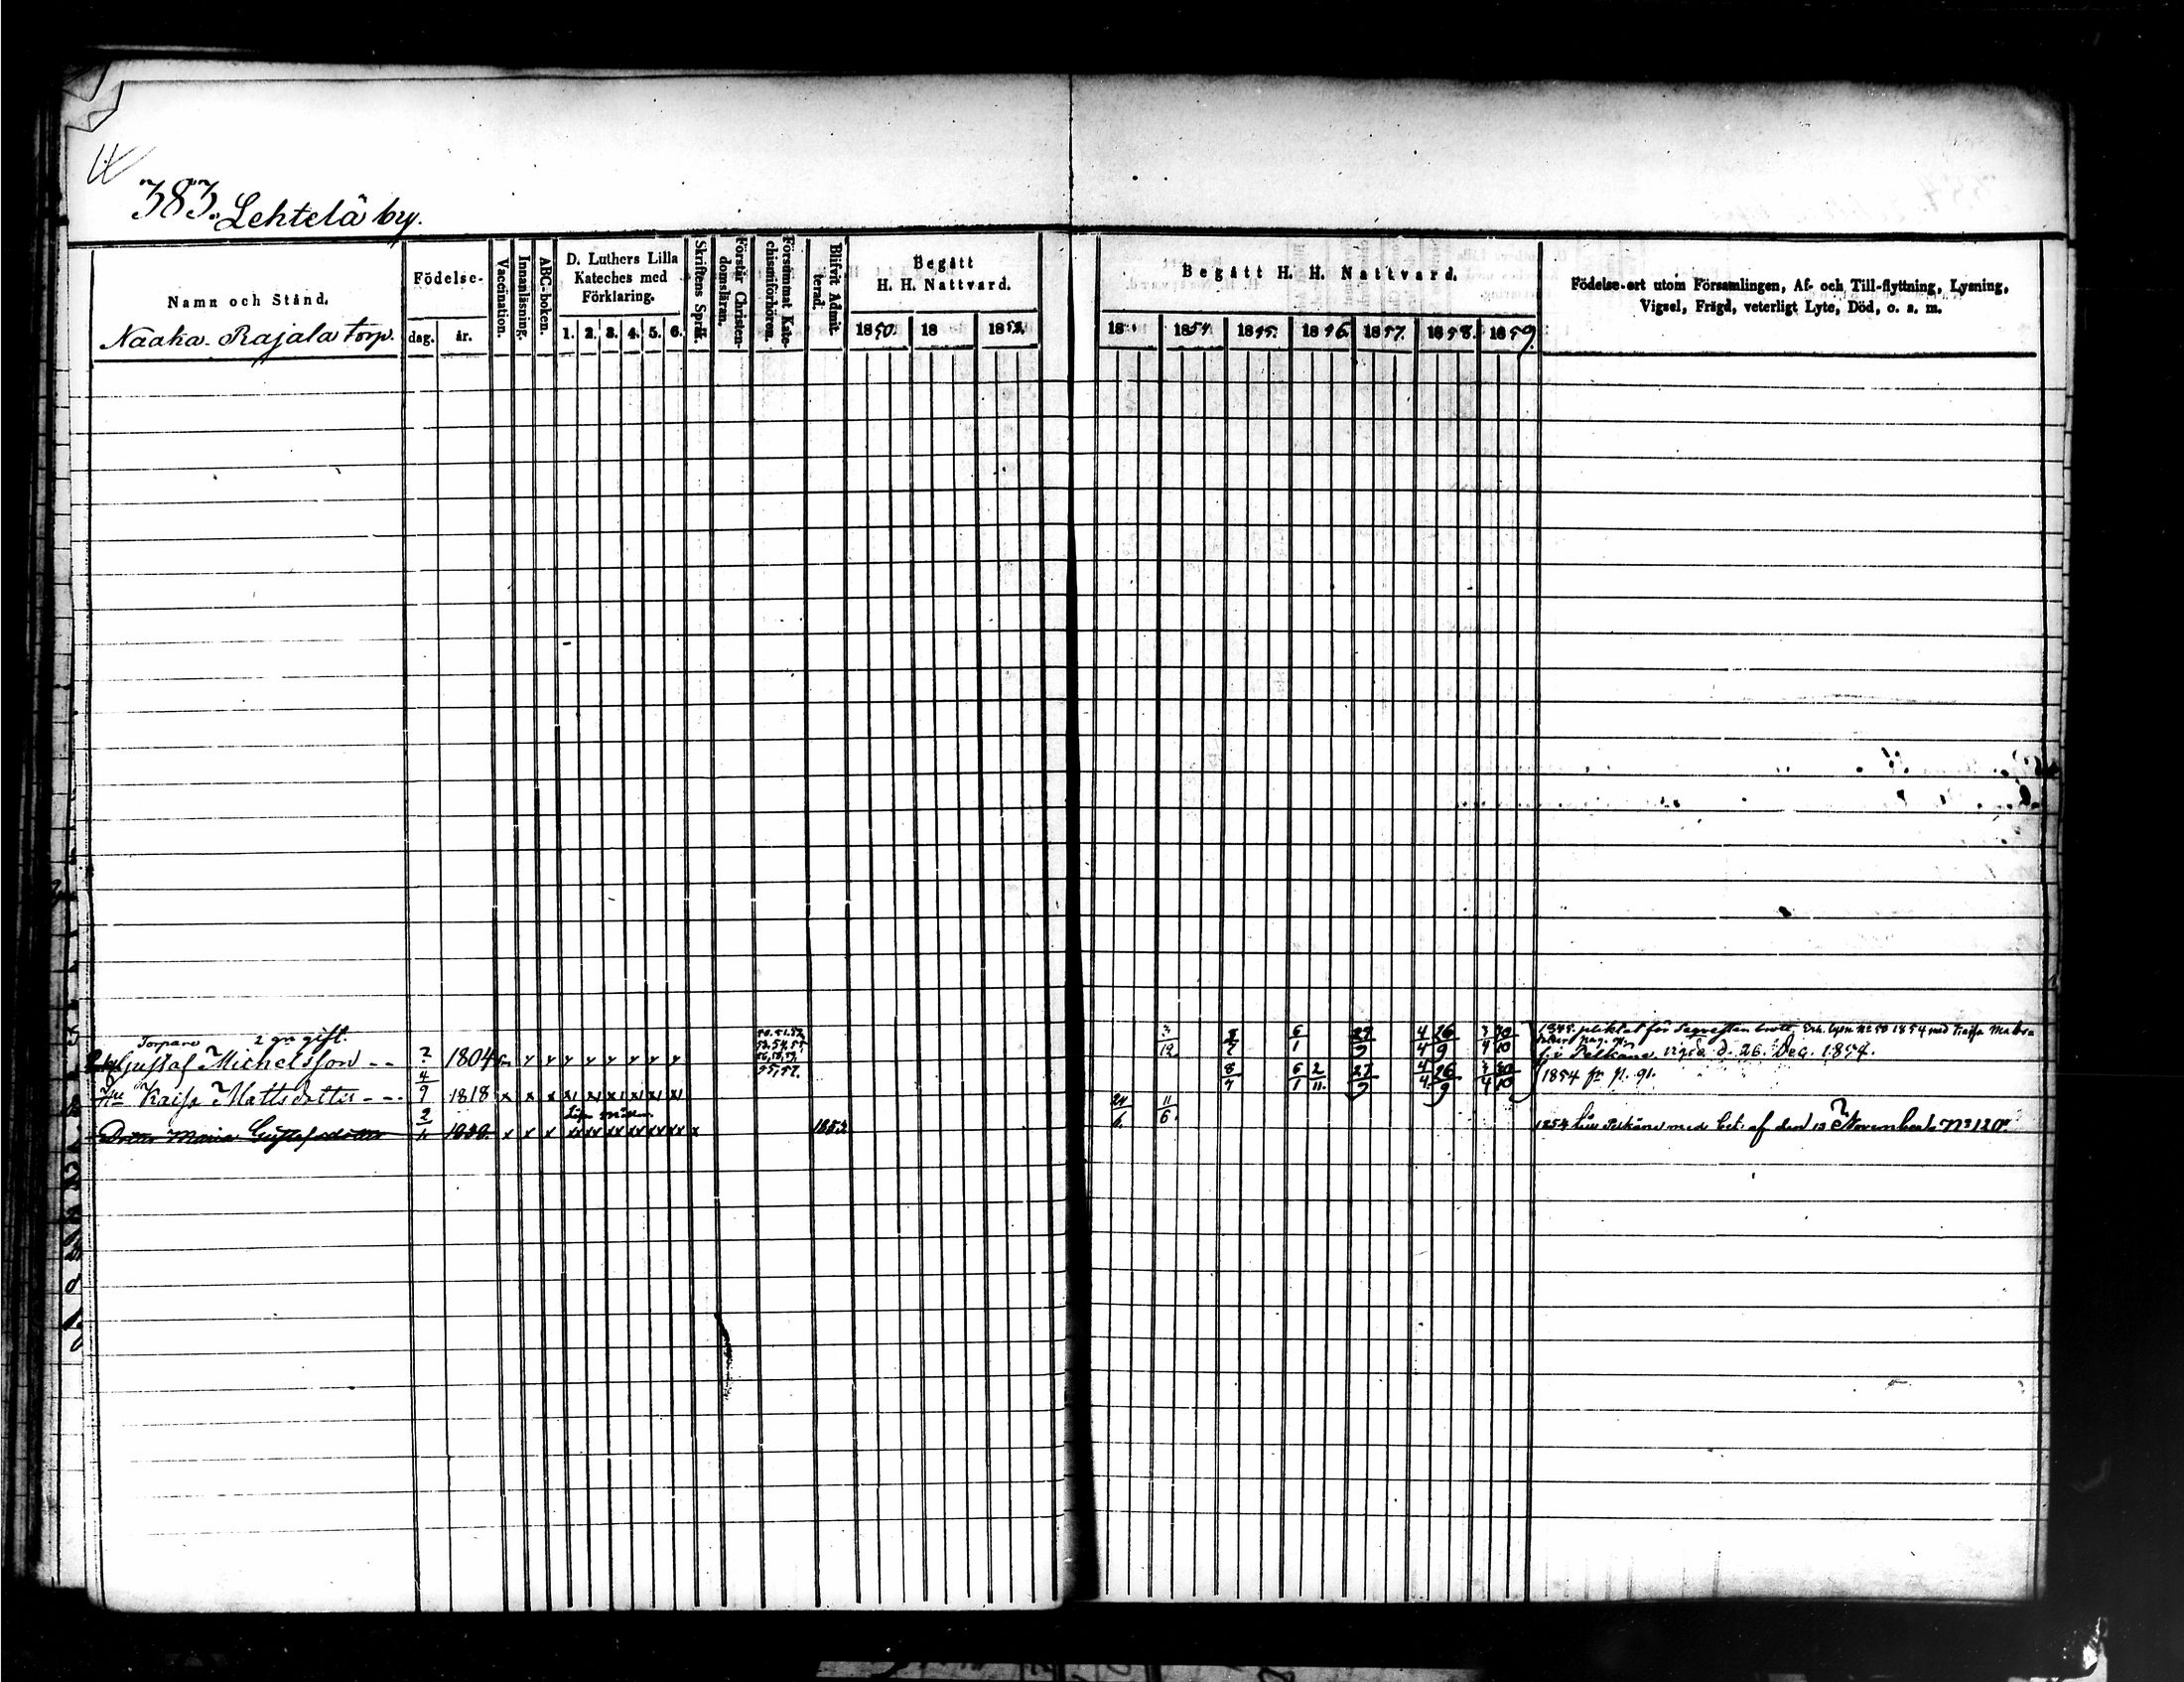 383. Lehtelä by.
Namn och Stånd.
Naaka. Rajala torp.
Födelse-
dag. år.
Vaccination.
Innanläsning.
ABC-boken.
D. Luthers Lilla
Kateches med
Förklaring.
1. 2. 3. 4. 5. 6.
Skriftens Språk.
Förstår Christen-
domsläran.
Försummat Kate-
chismiförhören.
Blifvit Admit-
terad.
Begått
H. H. Nattvard.
1850. 18 1853.
Begått H. H. Nattvard.
18 1854. 1855. 1856. 1857. 1858. 1859.
Födelse-ort utom Församlingen, Af- och Till-flyttning, Lysning,
Vigsel, Frägd, veterligt Lyte, Död, o. s. m.
Torpare 2 gr gift.
Gustaf Michelsson -- ? 1804
3/12 6/1 27/9 4/4 26/9 3/4 30/10
1854 med Kaisa
vigde d. 26. Dec. 1854.
Kaisa Mattsdotter --- 4/9 1818 x x x
8/7 6/1 2/11 27/9 4/4 26/9 3/4 30/10
1854 fr. p. 91.
Dotter Maria Gustafsdotter 2/11 x x x xx xx xx xx xx xx x 1853
24/6. 11/6.
1854 till Pelkäne med bet. af den 13 November No 120.